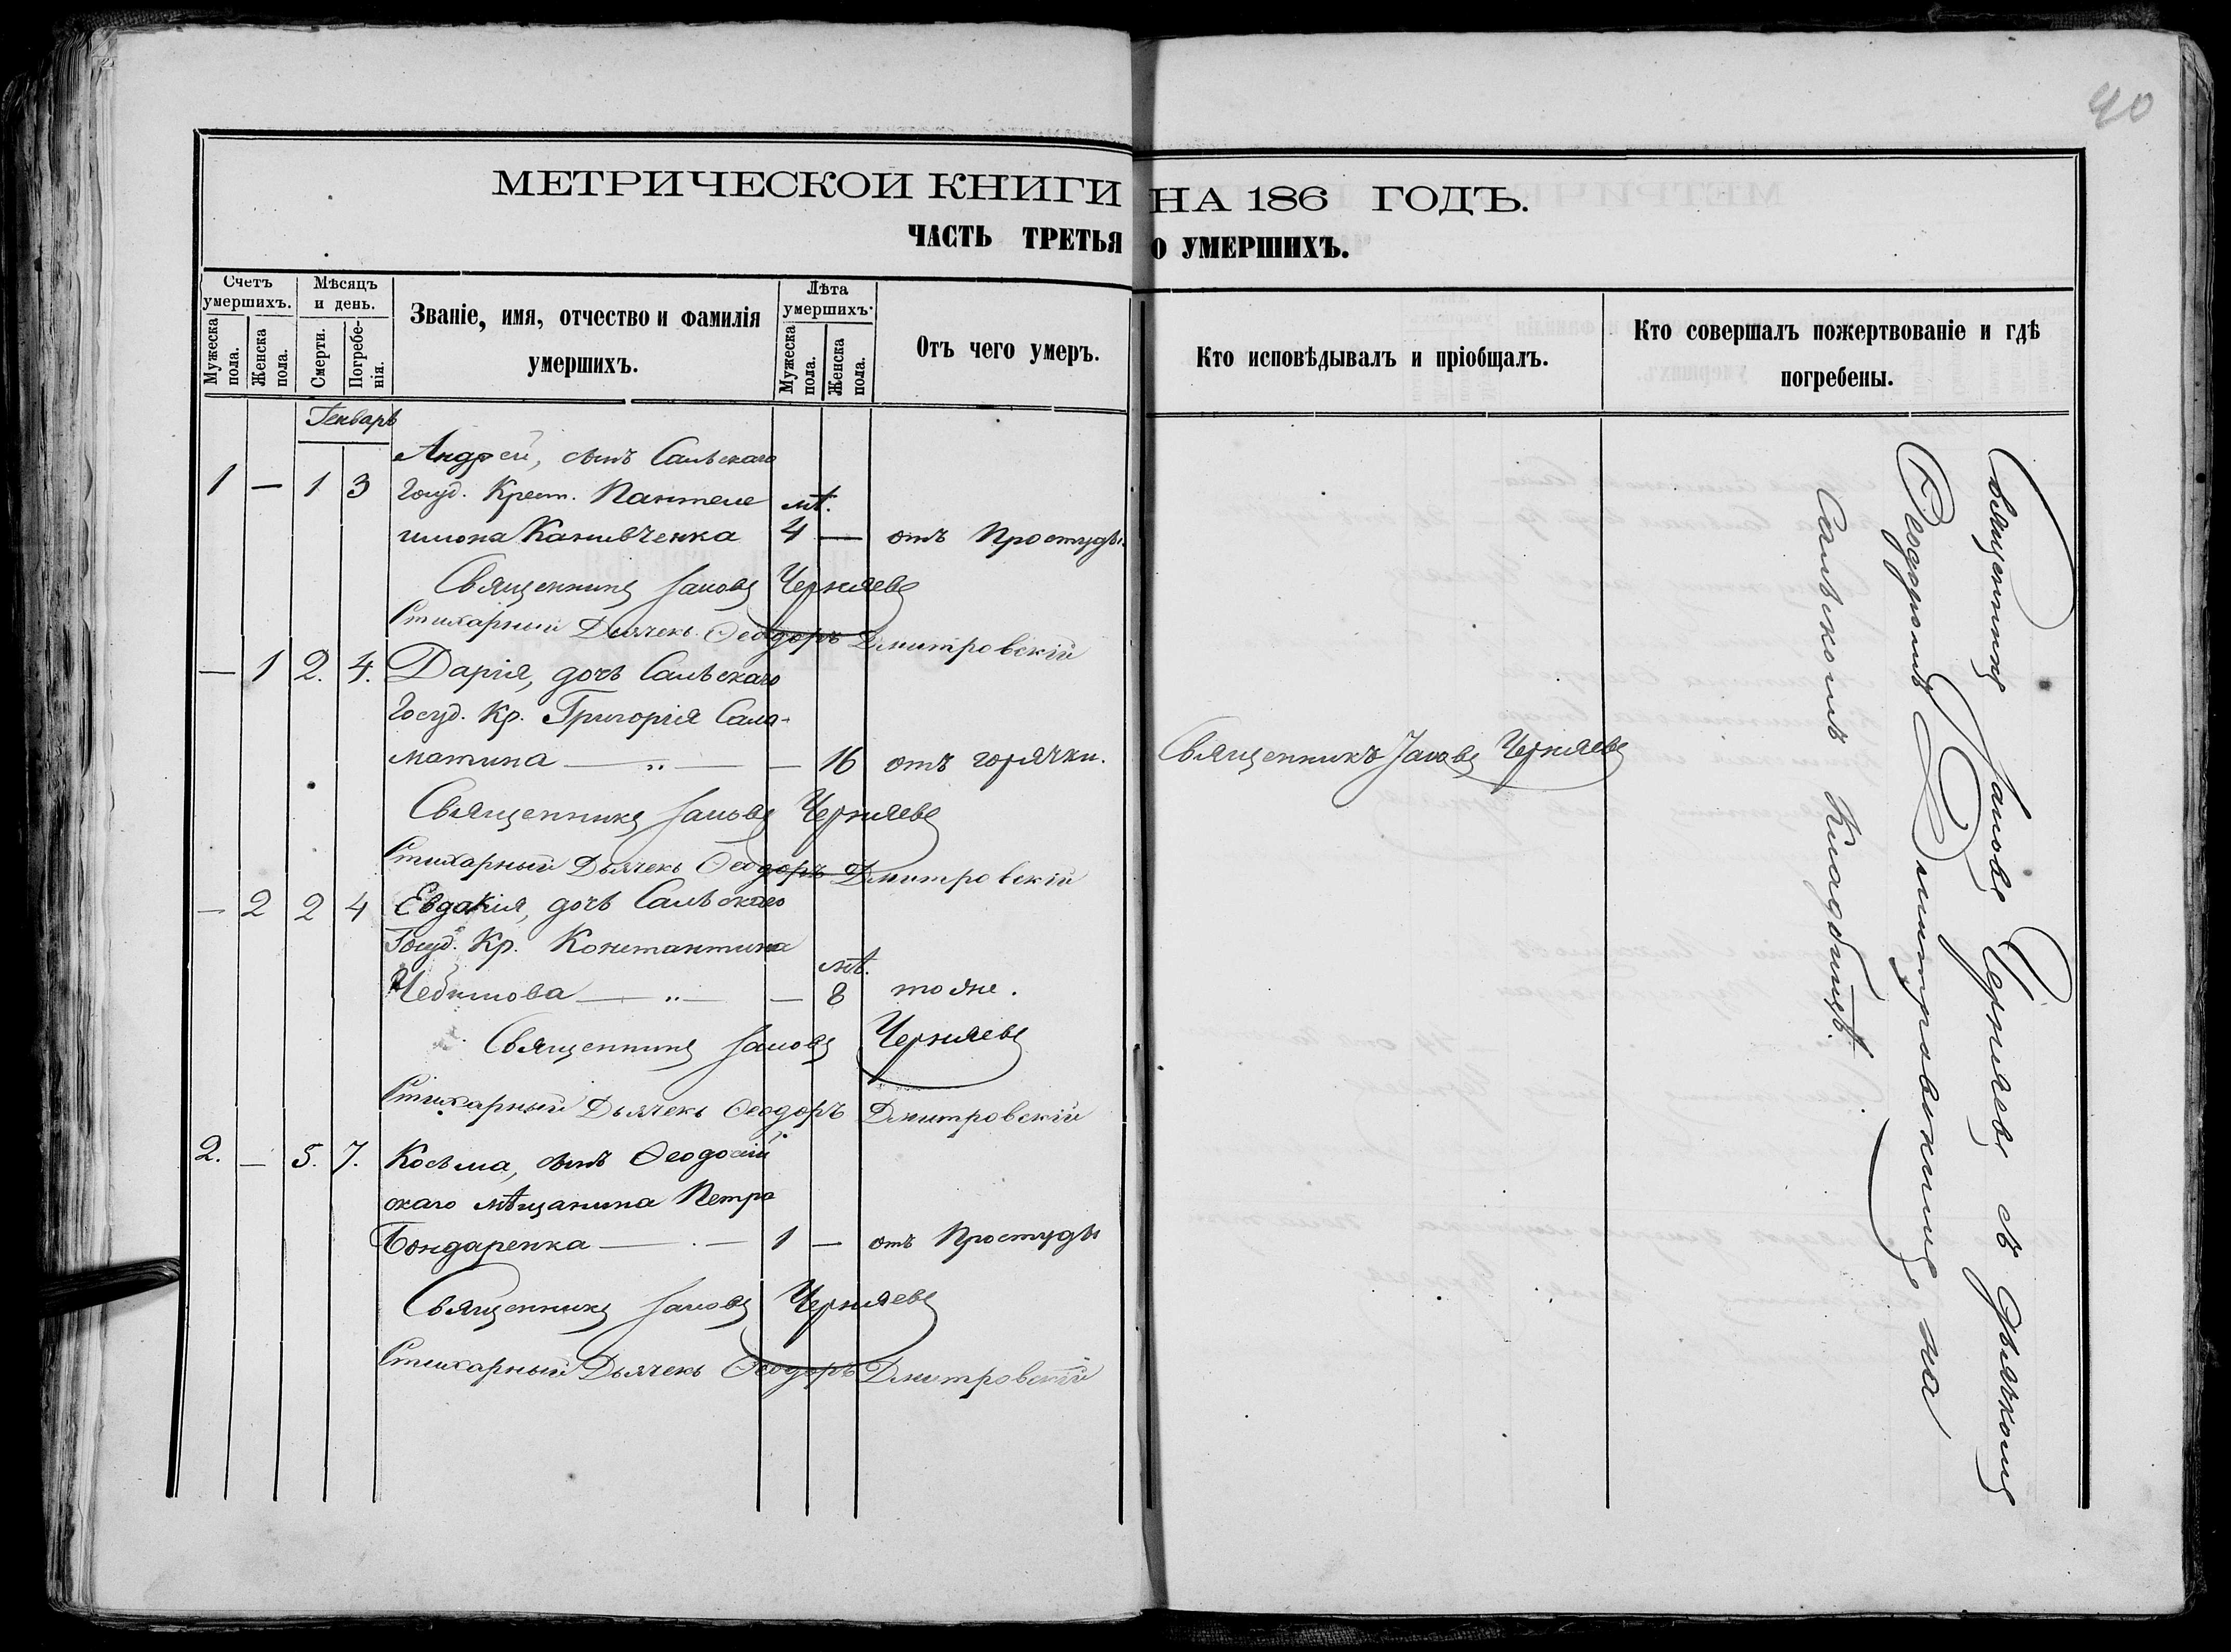 40
МЕТРИЧЕСКОЙ КНИГИ НА 186 ГОДЪ.
ЧАСТЬ ТРЕТЬЯ О УМЕРШИХЪ.
Счетъ умершихъ.
Мужеска пола.
Женска пола.
Мѣсяцъ и день.
Смерти.
Погребенія.
Званіе, имя, отчество и фамилія
умершихъ.
Лѣта умершихъ.
Мужеска пола.
Женска пола.
Отъ чего умеръ.
Кто исповѣдывалъ и пріобщалъ.
Кто совершалъ пожертвованіе и гдѣ
погребены.
Генварь
Андрей, сынъ Сальскаго
1 — 1 3 Госуд. Крест. Пантеле
имона Канивченка лѣт. 4 — отъ Простуды
Священникъ Іаковъ Черняевъ
Стихарный Дьячекъ Ѳеодоръ Дмитровскій
— 1 2. 4. Дарія, дочь Сальскаго
Госуд. Кр. Григорія Сала-
матина — „ — — 16 отъ горячки.
Священникъ Іаковъ Черняевъ
Священникъ Іаковъ Черняевъ
Стихарный Дьячекъ Ѳеодоръ Дмитровскій
— 2 2 4 Евдокія, дочь Сальскаго
Госуд. Кр. Константина
лѣт.
— „ — — 8 тоже.
Священникъ Іаковъ Черняевъ
Стихарный Дьячекъ Ѳеодоръ Дмитровскій
2. — 5. 7. Косьма, сынъ Ѳеодосій
скаго мѣщанина Петра
Бондаренка — 1 — отъ Простуды
Священникъ Іаковъ Черняевъ
Стихарный Дьячекъ Ѳеодоръ Дмитровскій
Священникъ Іаковъ Черняевъ съ Дьячкомъ
Ѳеодоромъ Дмитровскимъ на
Сальскомъ Кладбищѣ.